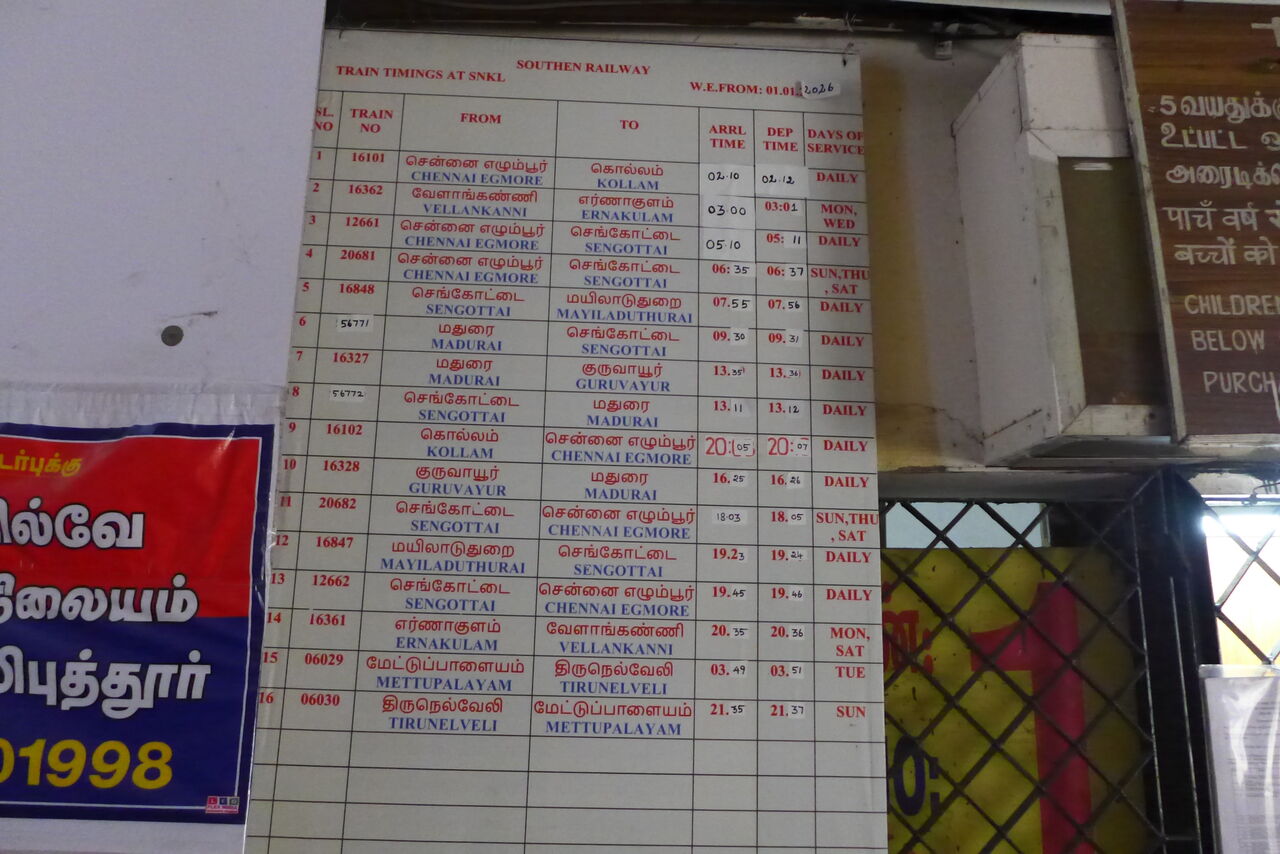 SOUTHEN RAILWAY
TRAIN TIMINGS AT SNKL
W.E.FROM: 01.01.2026
SL. NO TRAIN NO FROM TO ARRL TIME DEP TIME DAYS OF SERVICE
1 16101 சென்னை எழும்பூர் கொல்லம் 02.10 02.12 DAILY
CHENNAI EGMORE KOLLAM
2 16362 வேளாங்கண்ணி எர்ணாகுளம் 03.00 03:01 MON, WED
VELLANKANNI ERNAKULAM
3 12661 சென்னை எழும்பூர் செங்கோட்டை 05.10 05: 11 DAILY
CHENNAI EGMORE SENGOTTAI
4 20681 சென்னை எழும்பூர் செங்கோட்டை 06: 35 06: 37 SUN,THU , SAT
CHENNAI EGMORE SENGOTTAI
5 16848 செங்கோட்டை மயிலாடுதுறை 07.55 07.56 DAILY
SENGOTTAI MAYILADUTHURAI
6 56771 மதுரை செங்கோட்டை 09.30 09.31 DAILY
MADURAI SENGOTTAI
7 16327 மதுரை குருவாயூர் 13.35 13.36 DAILY
MADURAI GURUVAYUR
8 56772 செங்கோட்டை மதுரை 13.11 13.12 DAILY
SENGOTTAI MADURAI
9 16102 கொல்லம் சென்னை எழும்பூர் 20:05 20:07 DAILY
KOLLAM CHENNAI EGMORE
10 16328 குருவாயூர் மதுரை 16.25 16.26 DAILY
GURUVAYUR MADURAI
11 20682 செங்கோட்டை சென்னை எழும்பூர் 18.03 18.05 SUN,THU , SAT
SENGOTTAI CHENNAI EGMORE
12 16847 மயிலாடுதுறை செங்கோட்டை 19.23 19.24 DAILY
MAYILADUTHURAI SENGOTTAI
13 12662 செங்கோட்டை சென்னை எழும்பூர் 19.45 19.46 DAILY
SENGOTTAI CHENNAI EGMORE
14 16361 எர்ணாகுளம் வேளாங்கண்ணி 20.35 20.36 MON, SAT
ERNAKULAM VELLANKANNI
15 06029 மேட்டுப்பாளையம் திருநெல்வேலி 03.49 03.51 TUE
METTUPALAYAM TIRUNELVELI
16 06030 திருநெல்வேலி மேட்டுப்பாளையம் 21.35 21.37 SUN
TIRUNELVELI METTUPALAYAM
டர்புக்கு
ில்வே
ிலையம்
ிபுத்தூர்
01998
5 வயதுக்கு
உட்பட்ட
पाचँ वर्ष
बच्चों को
CHILDREN
BELOW
PURCH